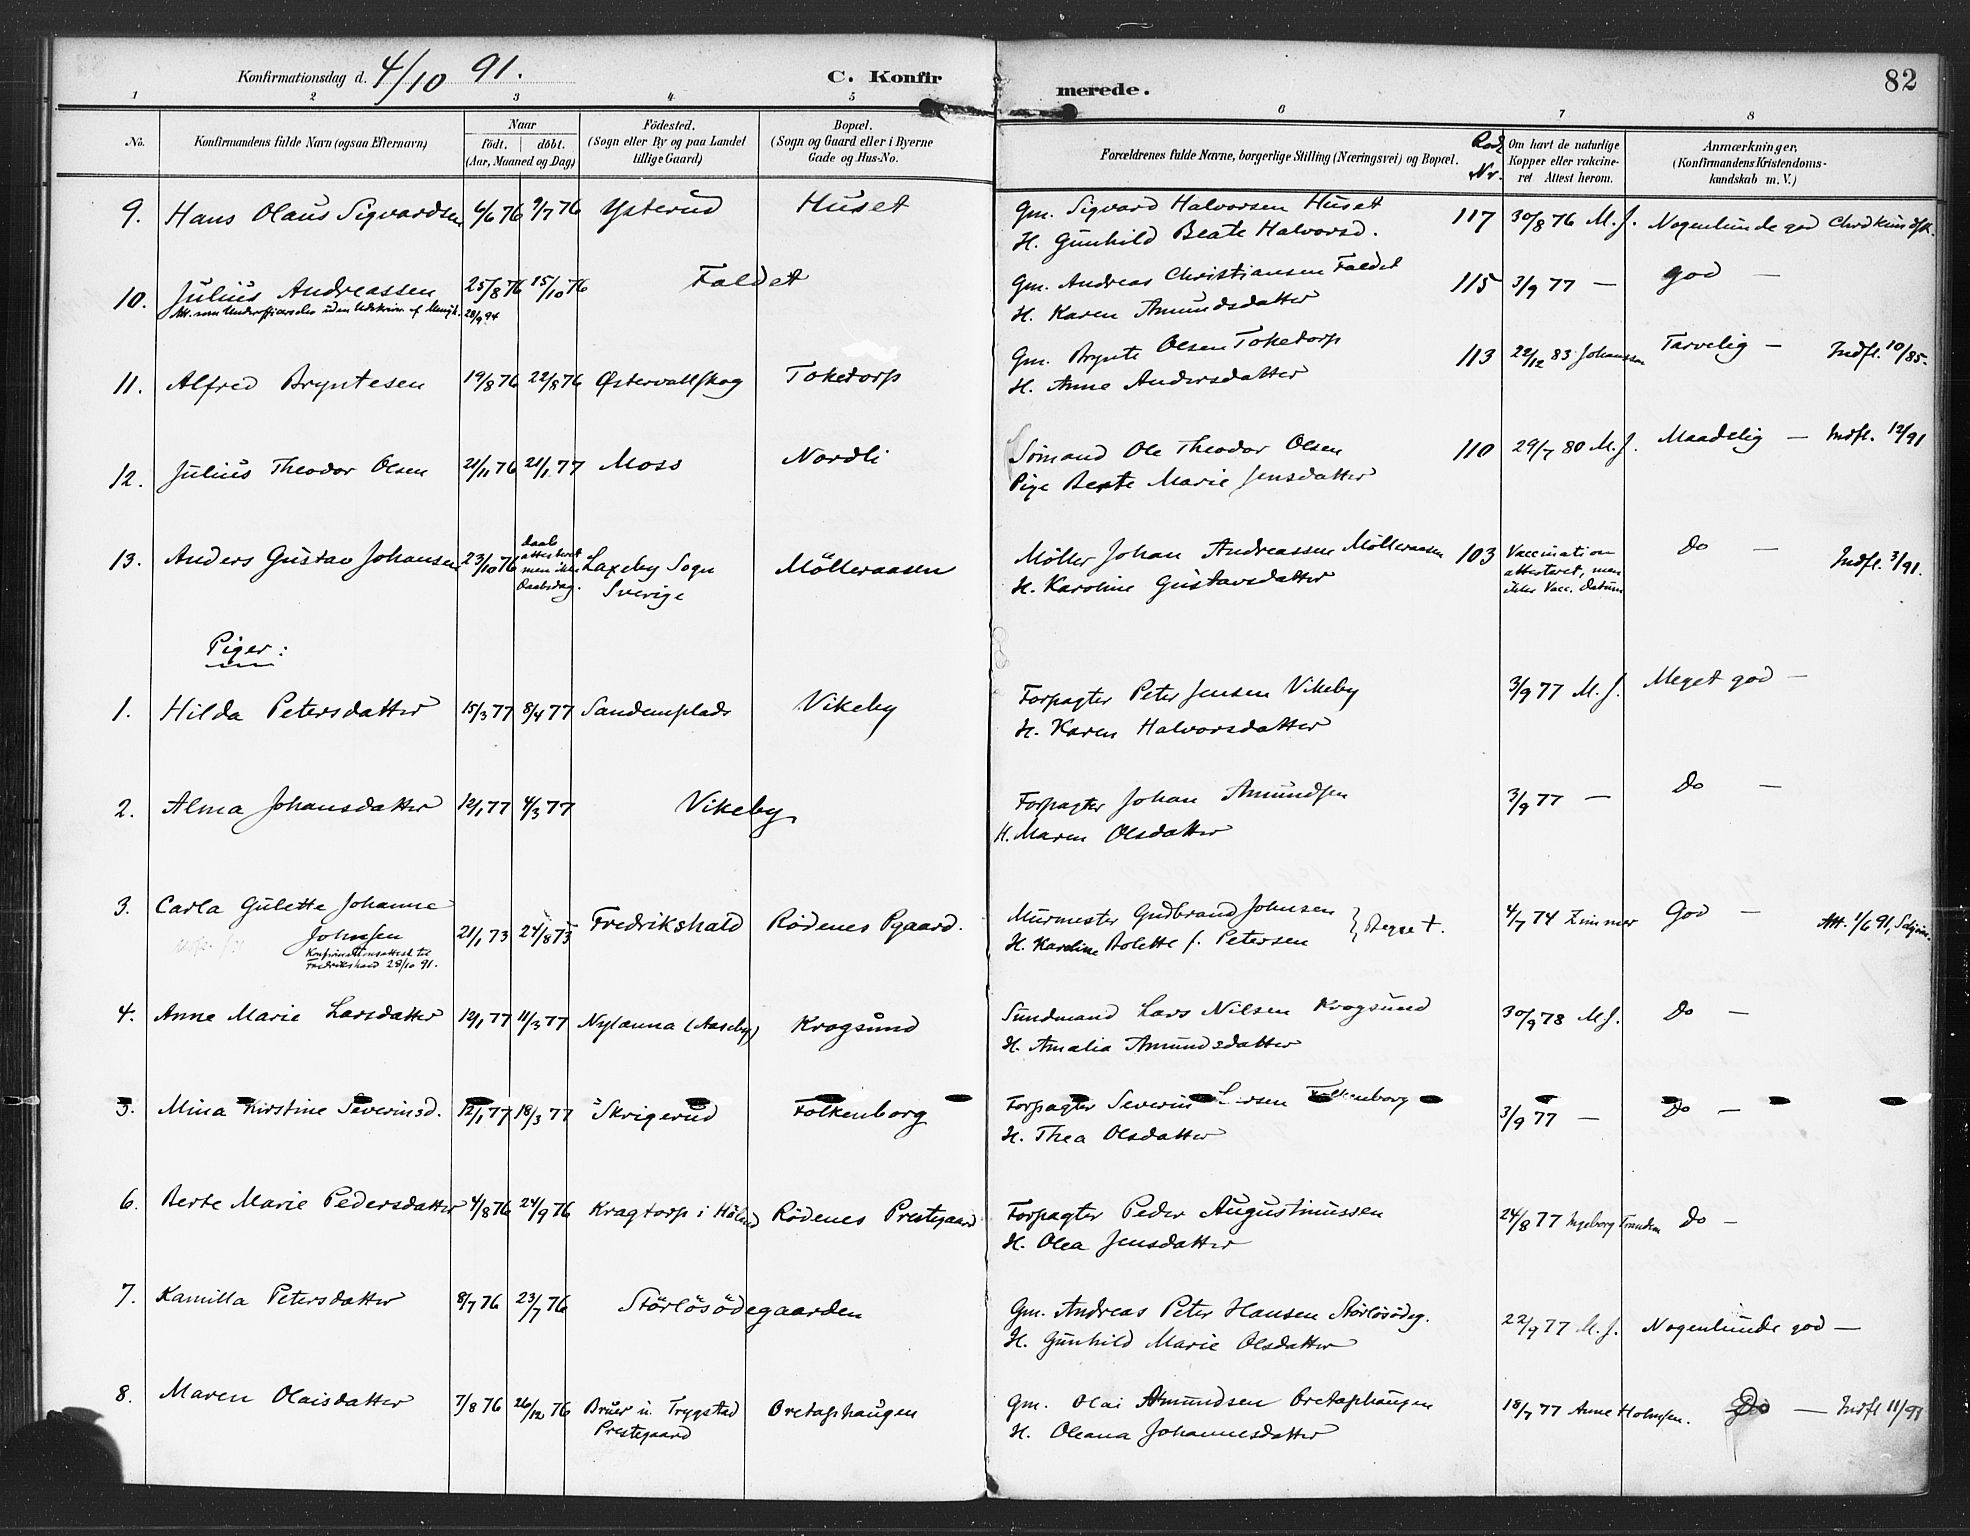 Konfirmationsdag d. 4/10 91. C. Konfirmerede. 82
1 2 3 4 5 6 7 8
No. Konfirmandens fulde Navn (ogsaa Efternavn) Naar født. døbt. (Aar, Maaned og Dag) Fødested. (Sogn eller By og paa Landet tillige Gaard) Bopæl. (Sogn og Gaard eller i Byerne Gade og Hus-No. Forældrenes fulde Navne, borgerlige Stilling (Næringsvei) og Bopæl. Rod Nr. Om havt de naturlige Kopper eller vakcineret Attest herom. Anmærkninger, (Konfirmandens Kristendomskundskab m. V.)
9. Hans Olaus Sigvardsen 6/6 76 9/7 76 Ysterud Huset Gm. Sigvard Halvorsen Huset 117 30/8 76 M. J. Nogenlunde god Chrdkundsk.
H. Gunhild Beate Halvorsd.
10. Julius Andreassen 25/8 76 15/10 76 Faldet Gm. Andreas Christiansen Faldet 115 3/9 77 — god —
28/9 94 H. Karen Amundsdatter
11. Alfred Bryntesen 19/8 76 22/8 76 Østervallskog Toketorp Gm. Brynte Olsen Toketorp 113 22/12 83 Johansson Tarvelig — Indfl. 10/85.
H. Anne Andersdatter
12. Julius Theodor Olsen 21/11 76 21/1 77 Moss Nordli Sømand Ole Theodor Olsen 110 29/7 80 M. J. Maadelig — Indfl. 12/91
Pige Berte Marie Jensdatter
13. Anders Gustav Johansen 23/10 76 Daab attesteret men ikke Daabsdag. Laxeby Sogn Sverige Mølleraasen Møller Johan Andreassen Mølleraasen 103 Vaccination attesteret, men ikke Vacc. datum Do — Indfl. 3/91.
H. Karoline Gustavsdatter
Piger:
1. Hilda Petersdatter 15/3 77 8/4 77 Sandemplads Vikeby Forpagter Peter Jensen Vikeby 3/9 77 M. J. Meget god —
H. Karen Halvorsdatter
2. Alma Johansdatter 12/1 77 4/3 77 Vikeby Forpagter Johan Amundsen 3/9 77 — Do —
H. Maren Olsdatter
3. Carla Gulette Johanne Johnsen 21/1 73 24/8 73 Fredrikshald Rødenes Pgaard. Murmester Gudbrand Johnsen } Begge †. 4/7 74 Zimmer God — Att. 1/6 91,
Konfirmationsattest til Fredrikshald 28/10 91. H. Karoline Bolette f. Petersen
4. Anne Marie Larsdatter 12/1 77 11/3 77 Nylanna (Aaseby) Krogsund Sundmand Lars Nilsen Krogsund 30/9 78 M. J. Do —
H. Amalia Amundsdatter
5. Mina Kirstine Severinsd. 12/1 77 18/3 77 Skrigerud Folkenborg Forpagter Severin Larsen Folkenborg 3/9 77 — Do —
H. Thea Olsdatter
6. Berte Marie Pedersdatter 4/8 76 24/9 76 Kragtorp i Høland Rødenes Prestegaard Forpagter Peder Augustinussen 24/8 77 Ingeborg Trandem Do —
H. Olea Jensdatter
7. Kamilla Petersdatter 8/7 76 23/7 76 Störlösödegaarden Gm. Andreas Peter Hansen Störlösödeg. 22/9 77 M. J. Nogenlunde god —
H. Gunhild Marie Olsdatter
8. Maren Olaisdatter 7/8 76 26/12 76 Bruer u. Trygstad Prestegaard Bretaphaugen Gm. Olai Amundsen Bretaphaugen 18/7 77 Anne Holmsen. Do — Indfl 11/91
H. Oleana Johannesdatter